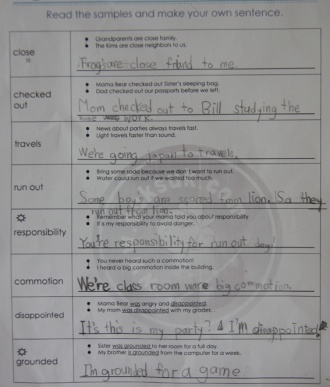 Read the samples and make your own sentence.
close
Grandparents are close family.
The Kims are close neighbors to us.
Frogs are close frind to me
checked out
Mama Bear checked out Sister's sleeping bag.
Dad checked out our passports before we left.
Mom checked out to Bill studying the
work.
travels
News about parties always travels fast.
Light travels faster than sound.
We're going japan to travels.
run out
Bring some soda because we don't want to run out.
Water could run out if we waited too much.
Some boy are scared from lion. So they
run out from lion.
responsibility
Remember what your mama told you about responsibility
It's my responsibility to avoid danger.
You're responsibility for run out day!
commotion
You never heard such a commotion!
I heard a big commotion inside the building.
We're class room were big commotion.
disappointed
Mama Bear was angry and disappointed.
My mom was disappointed with my grades.
It's this is my party? I'm disappointed!
grounded
Sister was grounded to her room for a full day.
My brother is grounded from the computer for a week.
I'm grounded for a game